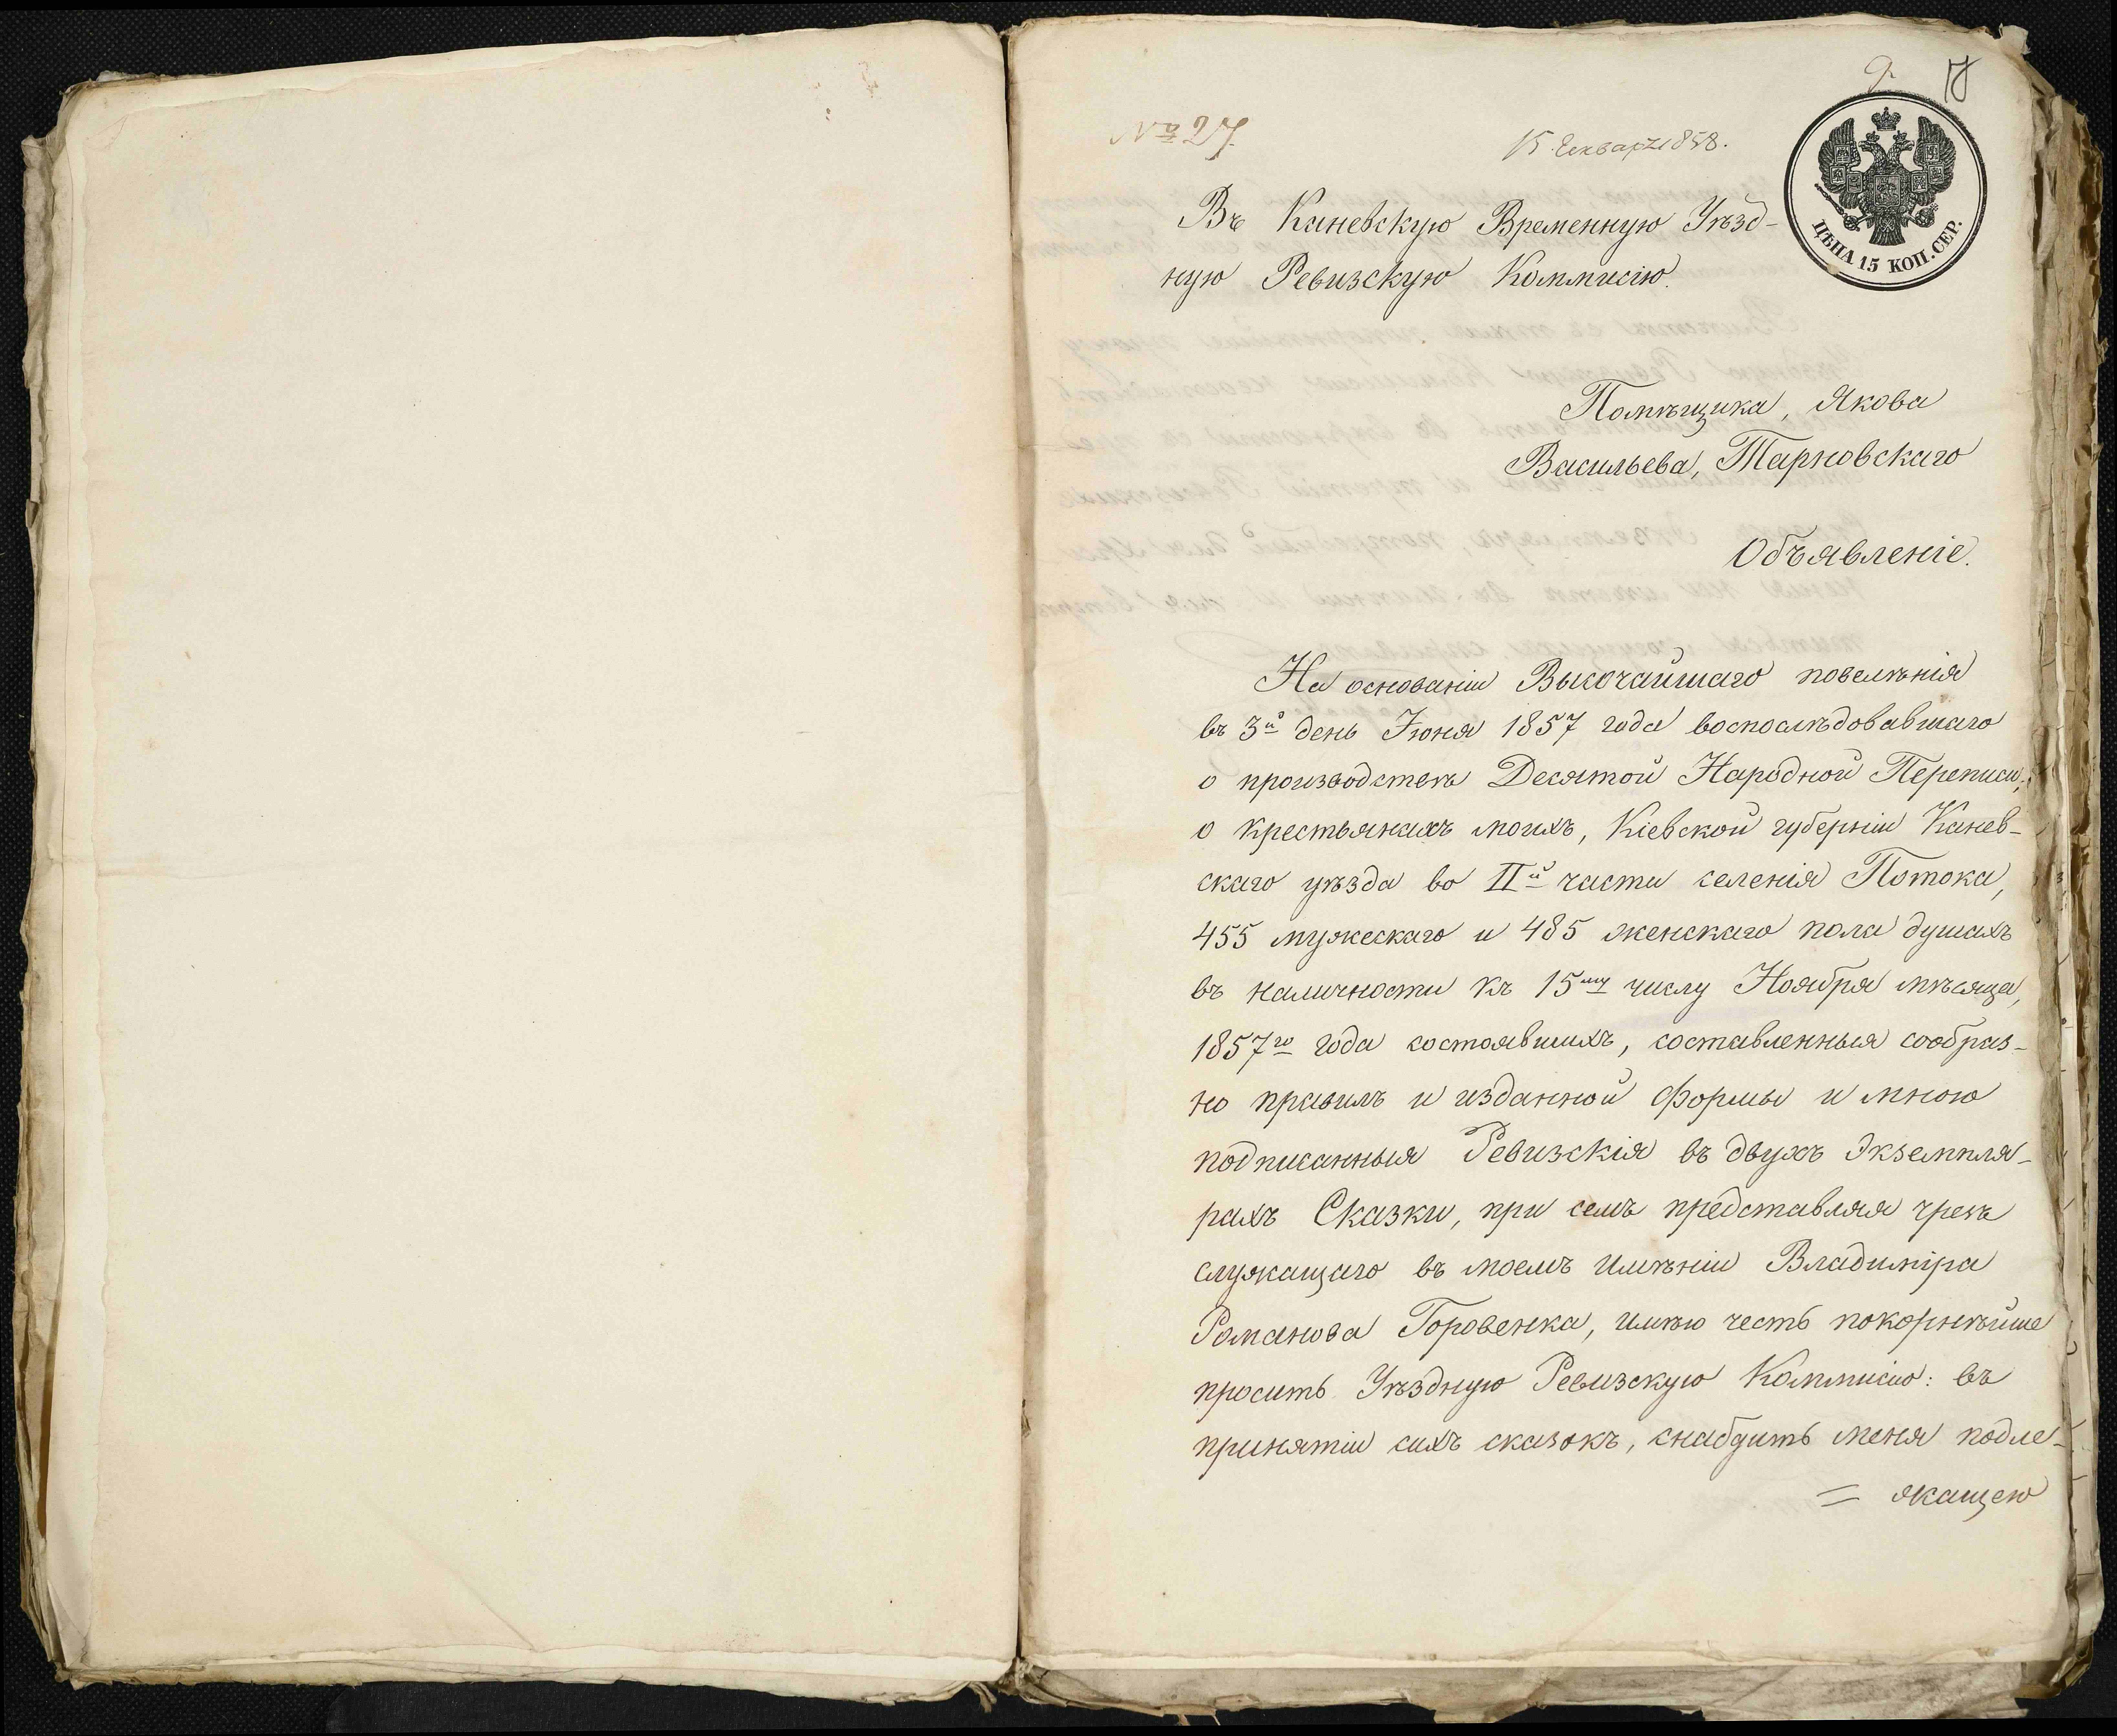 № 27.
15 Генваря 1858.
ЦѢНА 15 КОП. СЕР.
Въ Каневскую Временную Уѣзд-
ную Ревизскую Коммисію.
Помѣщика, Якова
Васильева, Тарновскаго
Объявленіе.
На основаніи Высочайшаго повелѣнія
въ 3й день Іюня 1857 года воспослѣдовавшаго
о производствѣ Десятой Народной Переписи,
о крестьянахъ моихъ, Кіевской губерніи Канев-
скаго уѣзда во IIй части селенія Потока,
455 мужескаго и 485 женскаго пола душахъ
въ наличности къ 15му числу Ноября мѣсяца,
1857го года состоявшихъ, составленныя сообраз-
но правилъ и изданной формы и мною
подписанныя Ревизскія въ двухъ Экземпля-
рахъ Сказки, при семъ представляя чрезъ
служащаго въ моемъ имѣніи Владиміра
Романова Горовенка, имѣю честь покорнѣйше
просить Уѣздную Ревизскую Коммисію: въ
принятіи сихъ сказокъ, снабдить меня подле-
= жащею